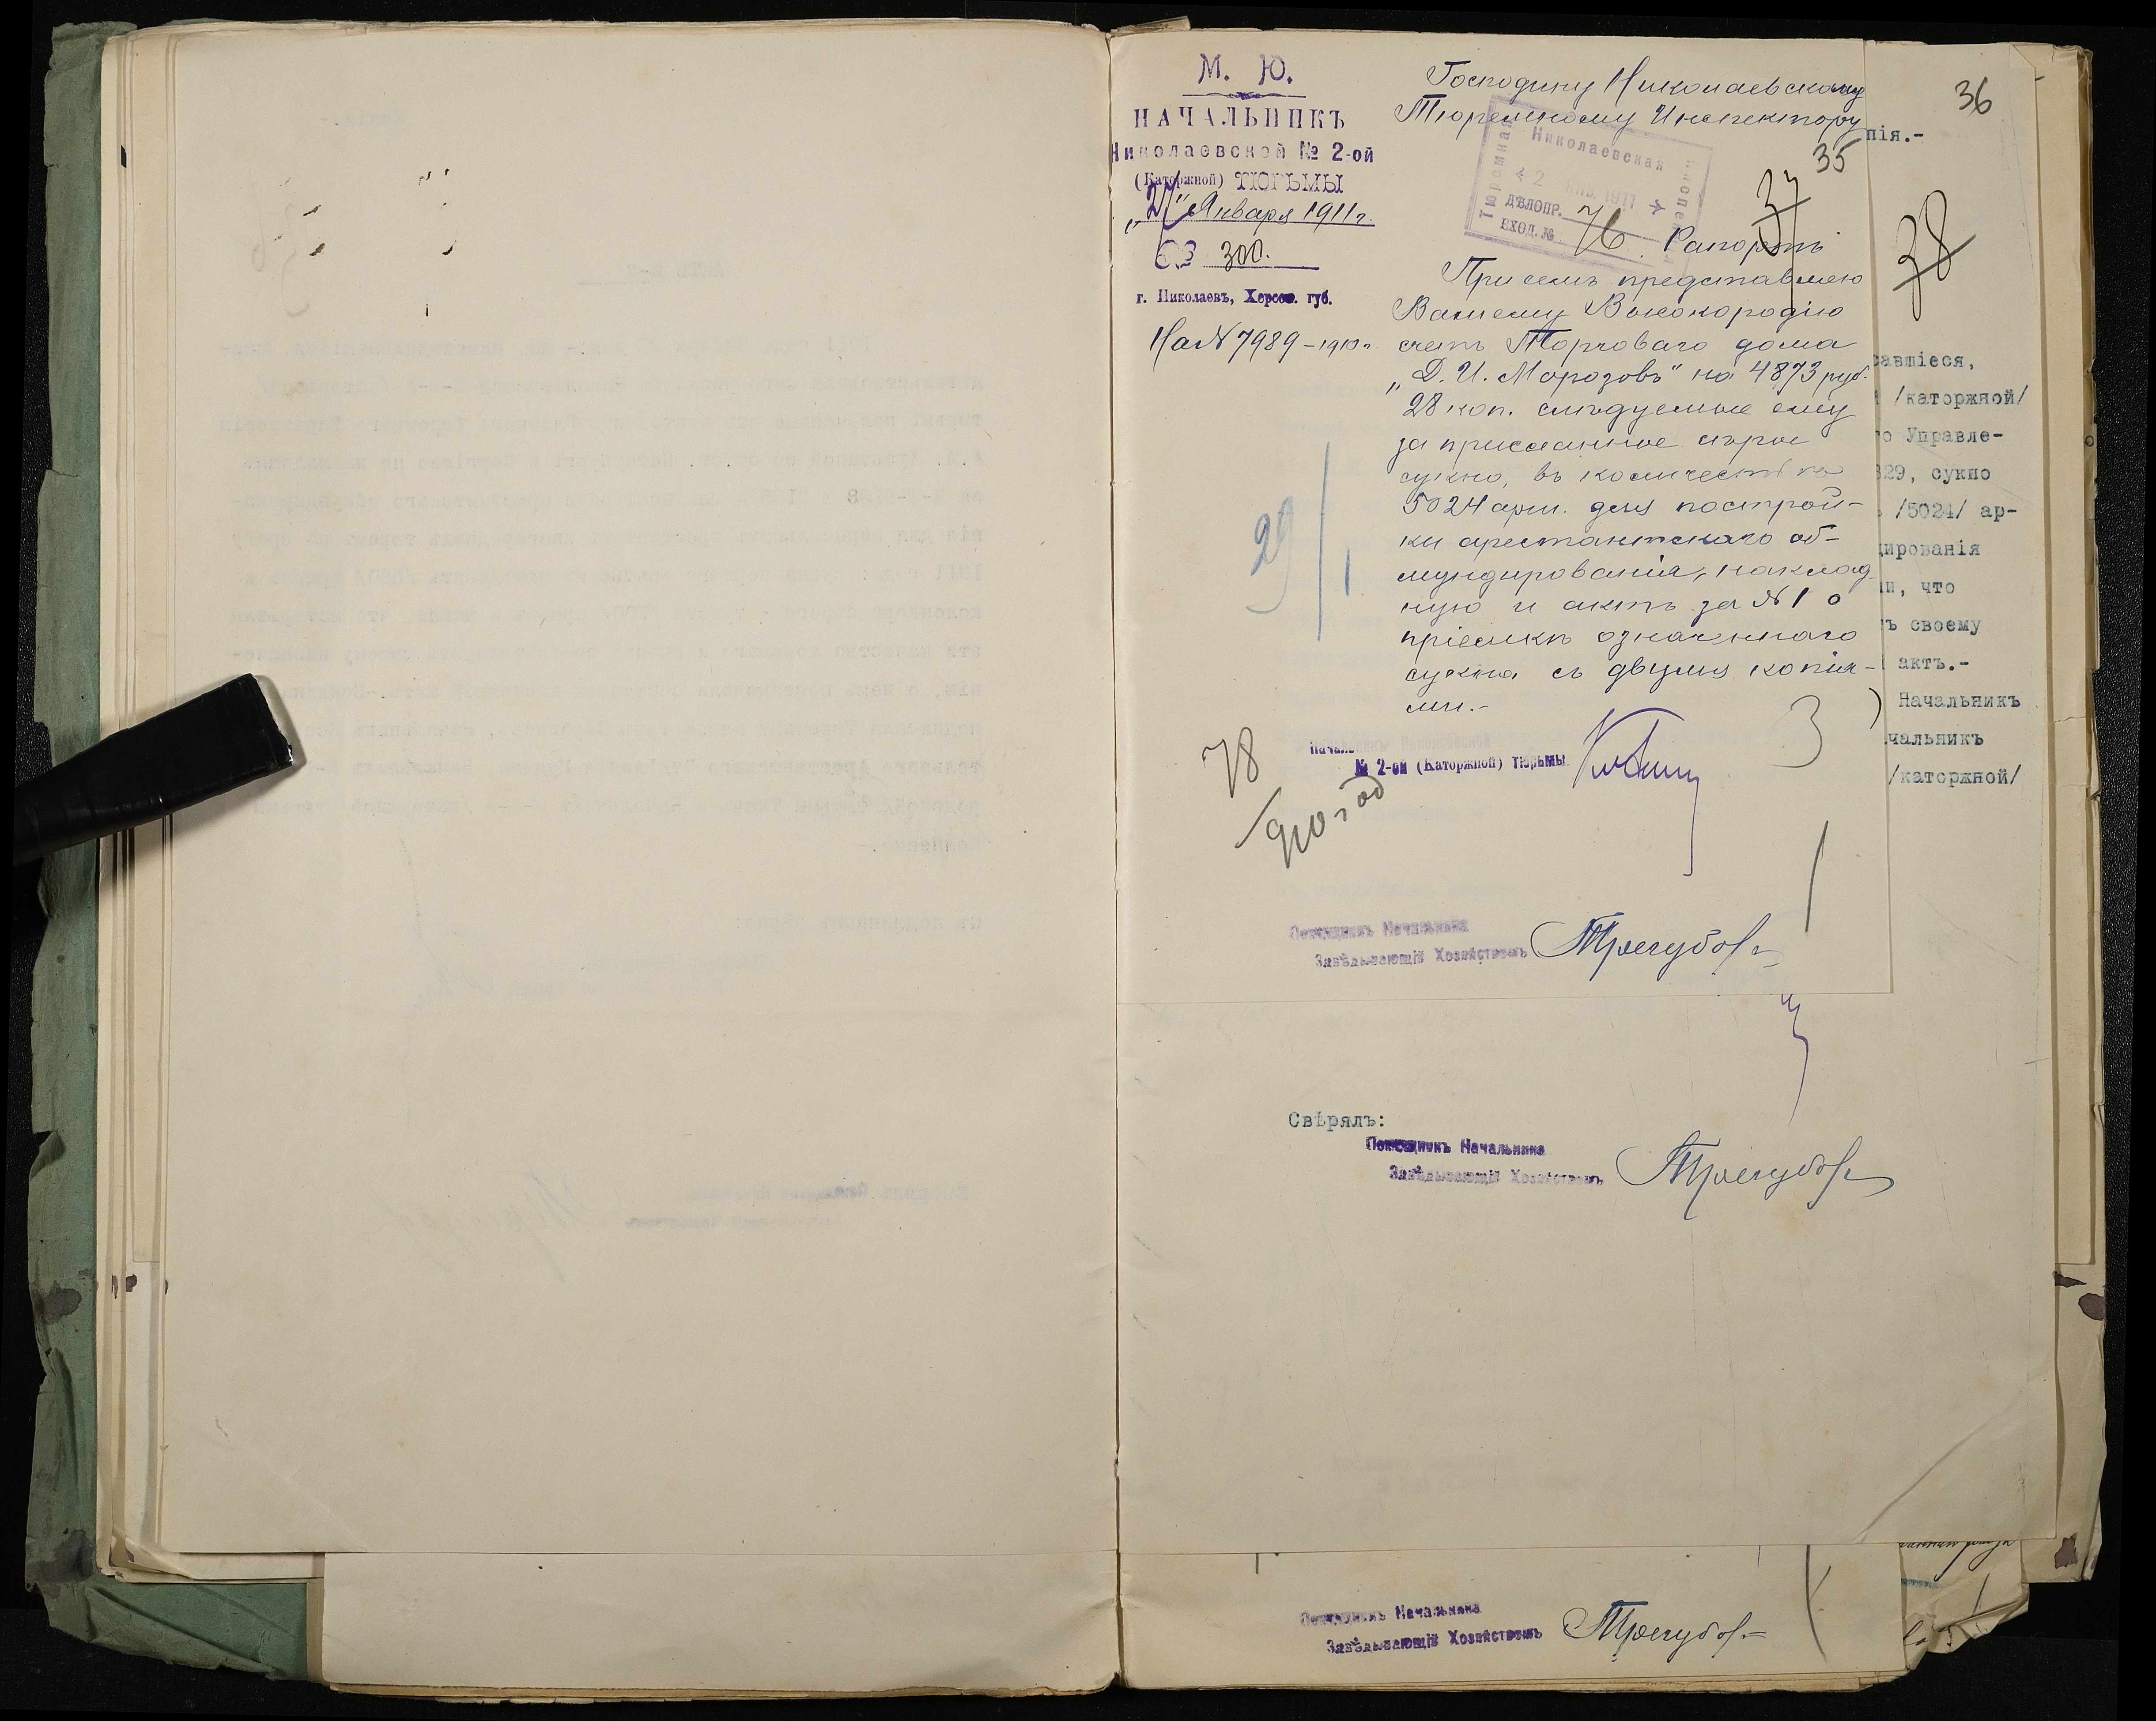 М. Ю.
НАЧАЛЬНИКЪ
Николаевской № 2-ой
(Каторжной) ТЮРЬМЫ
„27" Января 1911 г.
№ 300.
г. Николаевъ, Херсон. губ.
На № 7989 – 1910 г.
Господину Николаевскому
Тюремному Инспектору
36
35
37
38
Николаевская
Тюремная
Инспе
1911
ДѢЛОПР.
ВХОД. № 76
Рапортъ
При семъ представляю
Вашему Высокородію
счетъ Торговаго дома
„Д. И. Морозовъ" на 4873 руб.
28 коп. слѣдуемые ему
за присланное сѣрое
сукно, въ количествѣ
5024 арш. для построй-
ки арестантскаго об-
мундированія, наклад
ную и актъ за № 1 о
пріемкѣ означеннаго
сукна съ двумя копія-
ми.-
29/1
78
910 год
3
Началь
№ 2-ой (Каторжной) тюрьмы
Помощникъ Начальника
Завѣдывающій Хозяйствомъ Трегубовъ
нія.-
савшіеся,
/каторжной/
го Управле-
329, сукно
/5024/ ар-
дированія
ли, что
ъ своему
актъ.-
) Начальникъ
чальникъ
/каторжной/
Свѣрялъ:
Помощникъ Начальника
Завѣдывающій Хозяйствомъ Трегубовъ
Помощникъ Начальника
Завѣдывающій Хозяйствомъ Трегубовъ